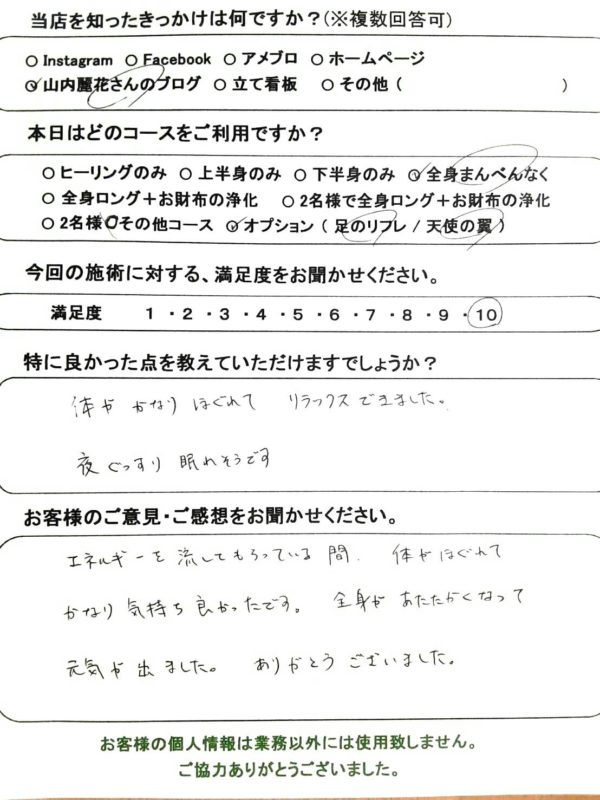 当店を知ったきっかけは何ですか？(※複数回答可)
○ Instagram ○ Facebook ○ アメブロ ○ ホームページ
○ 山内麗花さんのブログ ○ 立て看板 ○ その他 ( )
本日はどのコースをご利用ですか？
○ ヒーリングのみ ○ 上半身のみ ○ 下半身のみ ○ 全身まんべんなく
○ 全身ロング＋お財布の浄化 ○ 2名様で全身ロング＋お財布の浄化
○ 2名様○その他コース ○ オプション ( 足のリフレ / 天使の翼 )
今回の施術に対する、満足度をお聞かせください。
満足度 1 ・ 2 ・ 3 ・ 4 ・ 5 ・ 6 ・ 7 ・ 8 ・ 9 ・ 10
特に良かった点を教えていただけますでしょうか？
体が かなり ほぐれて リラックスできました。
夜ぐっすり 眠れそうです
お客様のご意見・ご感想をお聞かせください。
エネルギーを流してもらっている間、体がほぐれて
かなり気持ち良かったです。全身が あたたかくなって
元気が出ました。ありがとうございました。
お客様の個人情報は業務以外には使用致しません。
ご協力ありがとうございました。